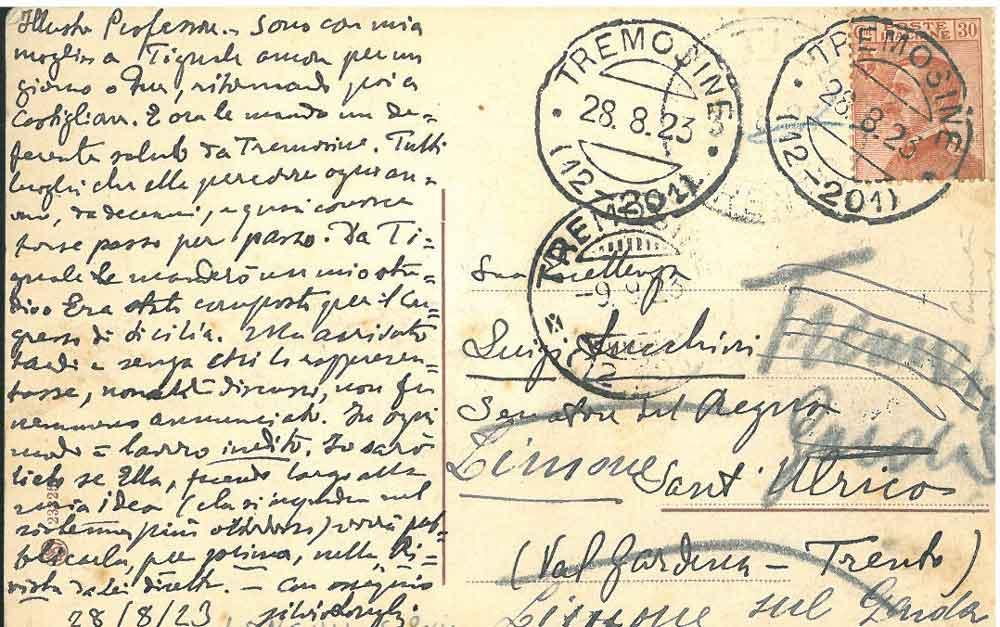 Illustre Professore. Sono con mia
moglie a Tignale ancora per un
giorno o due, ritornando poi a
Castiglion. E ora le mando un de-
ferente saluto da Tremosine. Tutti
luoghi che ella percorre ogni an-
no, da decenni, e quasi conosce
forse passo per passo. Da Ti-
gnale Le manderò un mio stu-
dio. Era stato composto per il Con-
gresso di Sicilia. Ma arrivato
tardi e senza chi lo rapresen-
tasse, non discussi, non fu
nemmeno annunciato. In ogni
modo lavoro indito. Io sarò
lieto se Ella, facendo largo alla
mia idea (che si inquadra nel
sistema più ortodosso) vorrà pub-
blicarla, per prima, nella Ri-
vista da Lei diretta. — Con ossequio
28/8/23,
TREMOSINE
28.8.23
(12-201)
TREMOSINE
28.8.23
(12-201)
POSTE ITALIANE 30
TREMOSINE
-9.23
Sua Eccellenza
Luigi
Senatore del Regno
Limone
Sant' Ulrico
(Val Gardena — Trento)
Limone sul Garda
2332